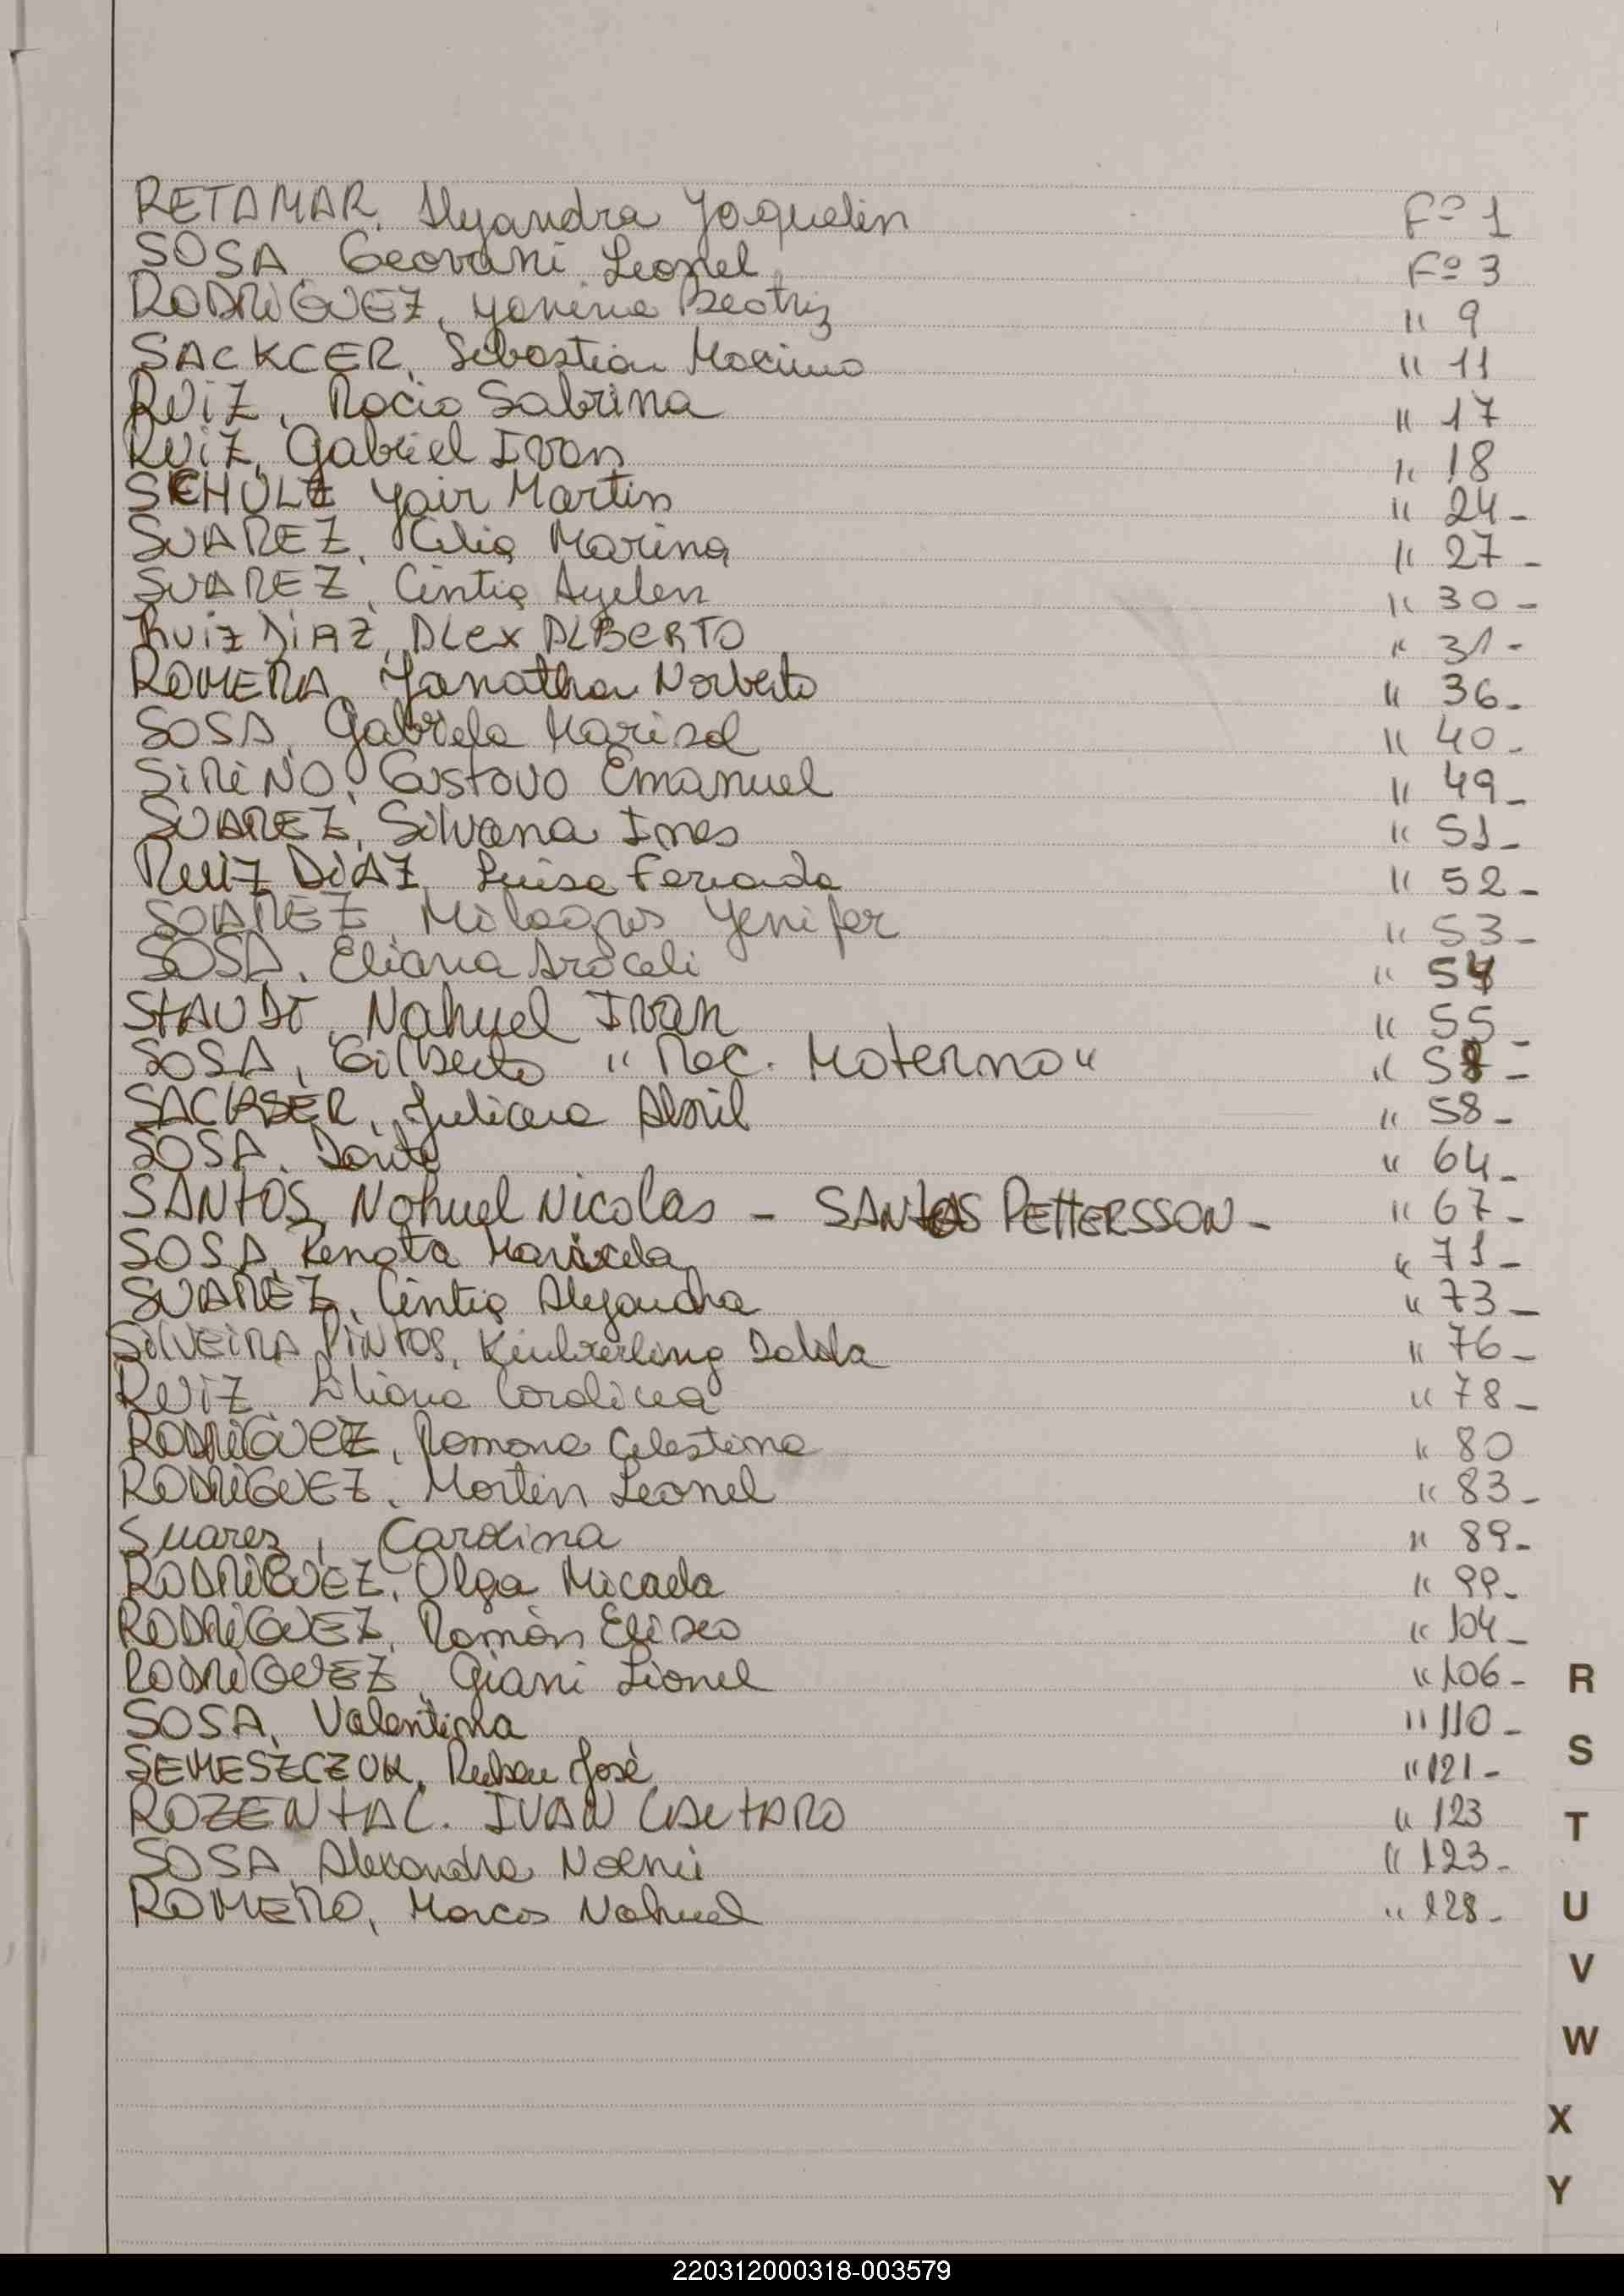 RETAMAR, Alejandra Joquelin Fº 1
SOSA, Geovani Leonel, Fº 3
RODRIGUEZ, Yanina Beatriz " 9
SACKCER, Sebastian Maximo " 11
RUIZ, Rocio Sabrina " 17
RUIZ, Gabriel Ivan " 18
SCHULZ Yair Martin " 24-
SUAREZ, Celia Marina " 27-
SUAREZ, Cintia Ayelen " 30-
Ruiz DiAZ, ALex ALBERTO " 31-
ROMERA, Jonathan Norberto " 36-
SOSA, Gabriela Marisol " 40-
SIRINO, Gustavo Emanuel " 49-
SUAREZ, Silvana Ines " 51-
RUIZ DIAZ, Luisa Fernanda " 52-
SUAREZ, Milagros Yenifer " 53-
SOSA, Eliana Araceli " 54
STAUDT, Nahuel Ivan " 55-
SOSA, Gilberto " Rec. Materno " "
SACKSER, Juliana Abril " 58-
SOSA, " 64-
SANTOS, Nahuel Nicolas - SANTOS PETTERSSON- " 67-
SOSA, Renata Maricela " 71-
SUAREZ, Cintia Alejandra " 73-
SILVEIRA PINTOS, Kimberling " 76-
RUIZ, Liliana Carolina " 78-
RODRIGUEZ, Ramona Celestina " 80
RODRIGUEZ, Martin Leonel " 83-
Suarez, Carolina " 89-
RODRIGUEZ, Olga Micaela " 99-
RODRIGUEZ, Román Eliseo " 104-
RODRIGUEZ, Giani Lionel " 106-
SOSA, Valentina " 110-
SEMESZCZUK, Ruben José " 121-
ROZENTAL. IVAN LAUTARO " 123
SOSA, Alexandra Noemi " 123-
ROMERO, Marcos Nahuel " 128-
R
S
T
U
V
W
X
Y
220312000318-003579